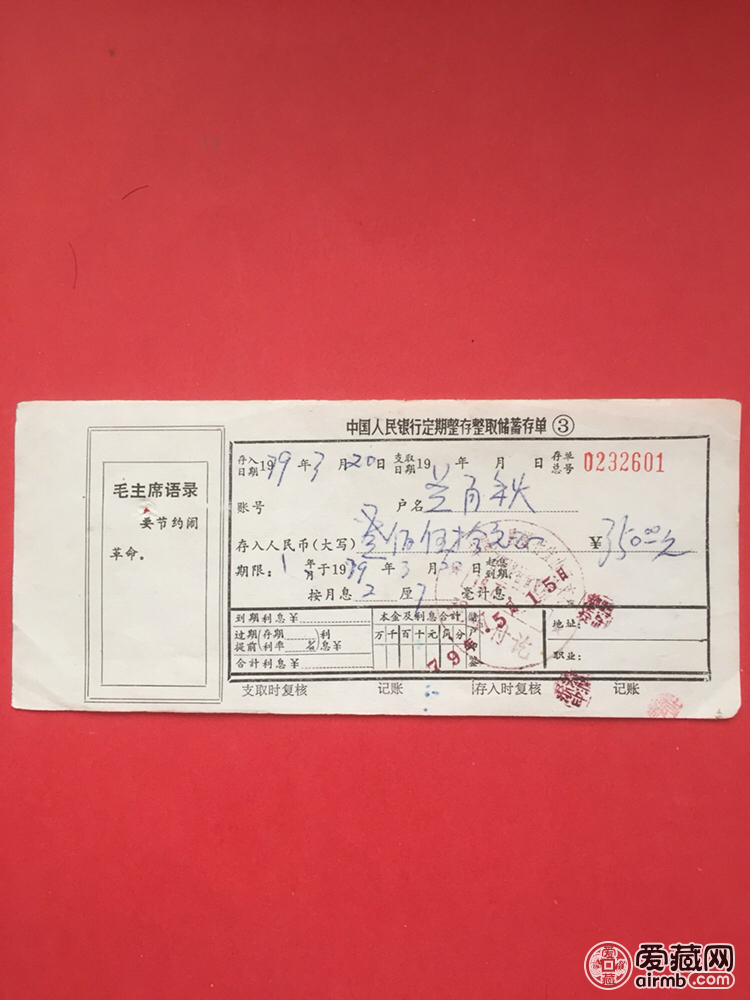 中国人民银行定期整存整取储蓄存单③
毛主席语录
要节约闹
革命。
存入日期1979年3月20日 支取日期19 年 月 日 存单总号 0232601
账号 户名
存入人民币(大写) ¥350.00元
期限:1年月于1979年3月20日起息到期
按月息2厘7毫计息
到期利息¥ 本金及利息合计 储户盖 地址:
过期提前(存期利率)利息¥ 万千百十元角分 职业:
合计利息¥
79年5月15日
付讫
支取时复核 记账 存入时复核 记账
爱藏网
airmb.com